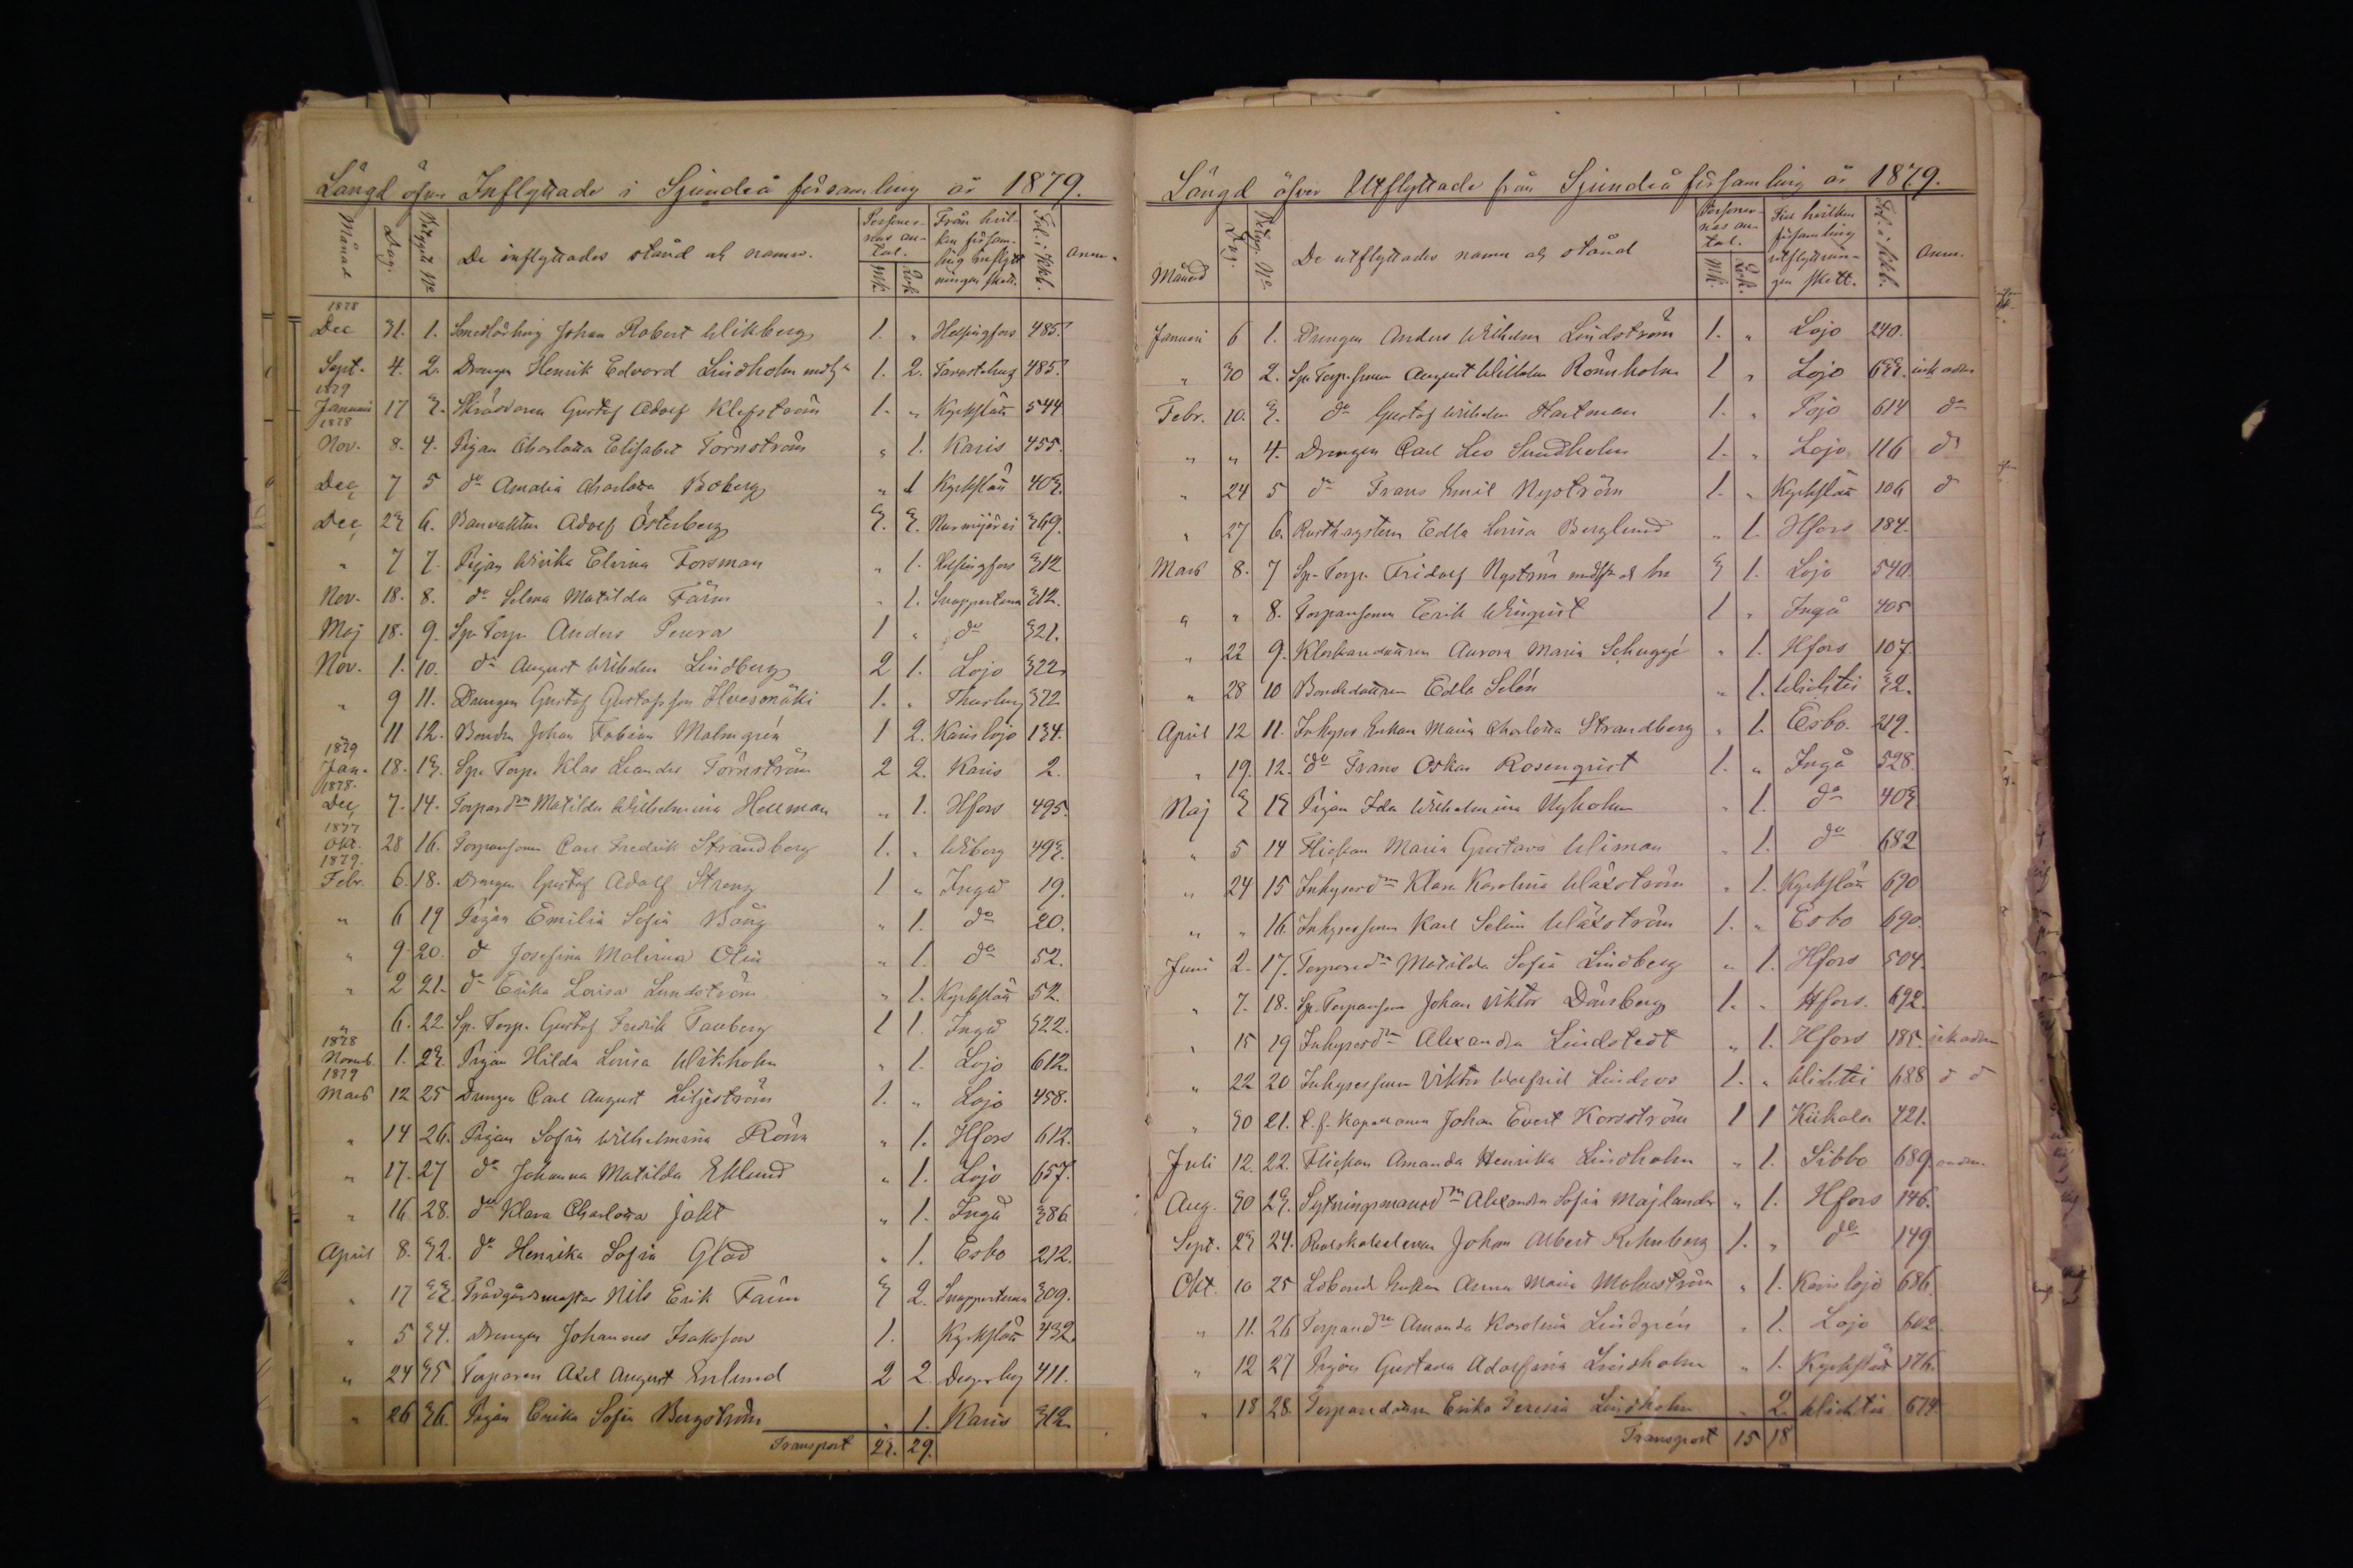 Längd öfver Inflyttade i Sjundeå församling år 1879.
Månad Dag. Betygets No De inflyttades stånd och namn. Personernas antal. Mk. Qvk. Från hvilken församling inflyttningen skett. Fol. i Kkb. Anm.
1878
Dec 31. 1. Smedlärling Johan Robert Wikberg 1. " Helsingfors 485.
Sept. 4. 2. Drengen Henrik Edvard Lindholm 1. 2. Tavastehus 485.
1879
Januari 17 3. Skräddaren Gustaf Adolf Klefström 1. " Kyrkslätt 544
1878
Nov. 8. 4. Pigan Charlotta Elisabet Törnström " 1. Karis 455.
Dec 7 5 do Amalia Charlotta Boberg " 1 Kyrkslätt 403.
Dec 23 6. Banvakten Adolf Österberg 3. 3. Nurmijärvi 369.
" 7 7. Pigan Wivika Elvina Forsman " 1. Helsingfors 312
Nov. 18. 8. do Selma Matilda Färm " 1. Snappertuna 312.
Maj 18. 9. Sp. Torp. Anders Peura 1 " do 321.
Nov. 1. 10. do August Wilhelm Lindberg 2 1. Lojo 322
" 9 11. Drengen Gustaf Gustafsson Hvesmäki 1. " Thusby 322
11 12. Bonden Johan Fabian Malmgrén 1 2. Karislojo 134.
1879
Jan. 18. 13. Sp. Torp. Klas Leander Törnström 2 2. Karis 2.
1878.
Dec 7. 14. Torpared:n Matilda Wilhelmina Hellman " 1. Hfors 495.
1877
Okt. 28 16. Torparsonen Carl Fredrik Strandberg 1. " Wiborg 493.
1879.
Febr. 6. 18. Drengen Gustaf Adolf Streng 1 " Ingå 19.
" 6 19 Pigan Emilia Sofia Bäng " 1. do 20.
" 9 20. do Josefina Malvina Olin " 1. do 52.
" 2 21. do Erika Lovisa Lundström " 1. Kyrkslätt 52.
" 6. 22. Sp. Torp. Gustaf Fredrik Tauberg 1 1. Ingå 322.
1878
Novemb. 1. 23. Pigan Hilda Lovisa Wikholm " 1. Lojo 612.
1879
Mars 12 25 Drengen Carl August Liljeström 1. " Lojo 458.
" 14 26. Pigan Sofia Wilhelmina Rönn " 1. Hfors 612.
" 17. 27 do Johanna Matilda Eklund " 1. Lojo 657.
" 16 28. do Klara Charlotta Jakt " 1. Ingå 386
April 8. 32. do Henrika Sofia Glad " 1. Esbo 212.
" 17 33. Trädgårdsmästar Nils Erik Färm 3 2. Snappertuna 309.
" 5 34. Drengen Johannes Isaksson 1. Kyrkslätt 432.
" 24 35 Torparen Axel August Enlund 2 2. Degerby 411.
" 26 36. Pigan Erika Sofia Bergström " 1. Karis 312.
Transport 23. 29.
Längd öfver Utflyttade från Sjundeå församling år 1879.
Månad Dag. Betyg. No De utflyttades namn och stånd Personernas antal. Mk. Qvk. Till hvilken församling utflyttningen skett. Fol. i Kkb. Anm.
Januari 6 1. Drengen Anders Wilhelm Lindström 1. " Lojo 240.
" 30 2. Sp. Torp. sonen August Wilhelm Rönnholm 1 " Lojo 633.
Febr. 10. 3. do Gustaf Wilhelm Hartman 1. " Pojo 614 do
" " 4. Drengen Carl Leo Sundholm 1. " Lojo 116 do
" 24 5 do Frans Emil Nyström 1. " Kyrkslätt 106 d
" 27 6. Edla Lovisa Berglund " 1. Hfors 184.
Mars 8. 7 Sp. Torp. Fridolf Nyström 3 1. Lojo 540.
" " 8. Torparsonen Erik Winqvist 1 " Ingå 405
" 22 9. Aurora Maria Schuggé " 1. Hfors 107.
" 28 10 Bondedottren Edla Selén " 1. Wichtis 32.
April 12 11. Inhyses Enkan Maria Charlotta Strandberg " 1. Esbo. 219.
" 19. 12. do Frans Oskar Rosenqvist 1. " Ingå 528.
Maj 3 13 Pigan Ida Wilhelmina Nyholm " 1. do 403
" 5 14 Flickan Maria Gustava Wiman " 1. do 682
" 24 15 Inhysesd:n Klara Karolina Wäxström " 1. Kyrkslätt 690
" " 16. Inhysessonen Karl Selim Wäxström 1. " Esbo 690.
Juni 2. 17. Torpared:n Matilda Sofia Lindberg " 1. Hfors 504.
" 7. 18. Sp. Torparsonen Johan Viktor Dönsberg 1. " Hfors. 692.
" 15 19 Inhysesd:n Alexandra Lindstedt " 1. Hfors 185.
" 22 20 Inhysessonen Viktor Walfrid Lindroos 1. " Wichtis 688 d d
" 30 21. Johan Evert Korsström 1 1 Kiikala 421.
Juli 12. 22. Flickan Amanda Henrika Lindholm " 1. Sibbo 689
Aug. 30 23. Sytningsmansd:n Alexandra Sofia Majlander " 1. Hfors 146.
Sept. 23 24. Realskoleeleven Johan Albert Rehnberg 1. " do 149
Okt. 10 25 Enkan Anna Maria Malmström " 1. Karislojo 686.
" 11. 26 Torpared:n Amanda Karolina Lindgrén " 1. Lojo 602.
" 12 27 Pigan Gustava Adolfina Lindholm " 1. Kyrkslätt 176.
" 18 28. Torparedottren Erika Teresia Lindholm " 2. Wichtis 674.
Transport 15 18